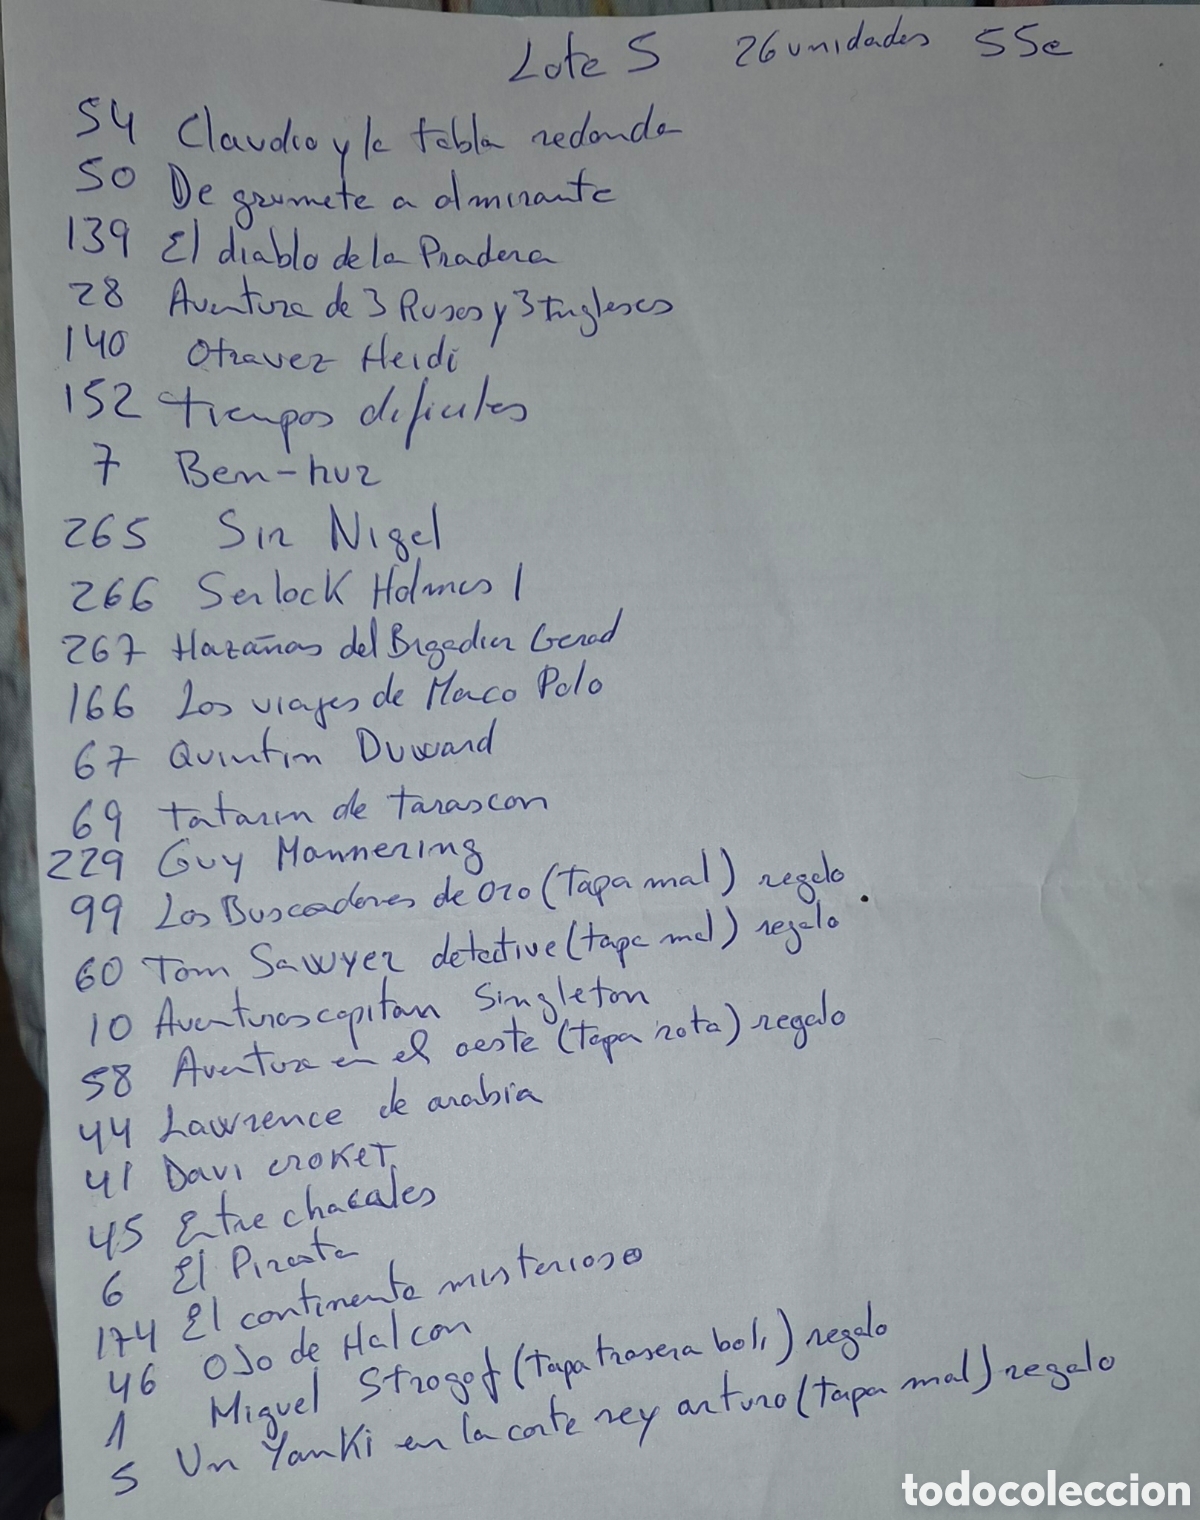 Lote 5 26 unidades 55e
54 Claudio y la tabla redonda
50 De grumete a almirante
139 El diablo de la Pradera
28 Aventura de 3 Rusos y 3 Ingleses
140 Otra vez Heidi
152 tiempos dificiles
7 Ben-hur
265 Sir Nigel
266 Serlock Holmes 1
267 Hazañas del Brigadier Gerad
166 Los viajes de Marco Polo
67 Quintin Duward
69 tatarin de tarascon
229 Guy Mannering
99 Los Buscadores de oro (tapa mal) regalo
60 Tom Sawyer detective (tapa mal) regalo
10 Aventuras capitan Singleton
58 Aventura en el oeste (tapa rota) regalo
44 Lawrence de arabia
41 Davi croket
45 Entre chacales
6 El Pirata
174 El continente misterioso
46 Ojo de Halcon
1 Miguel Strogof (tapa trasera boli) regalo
5 Un Yanki en la corte rey arturo (tapa mal) regalo
todocoleccion